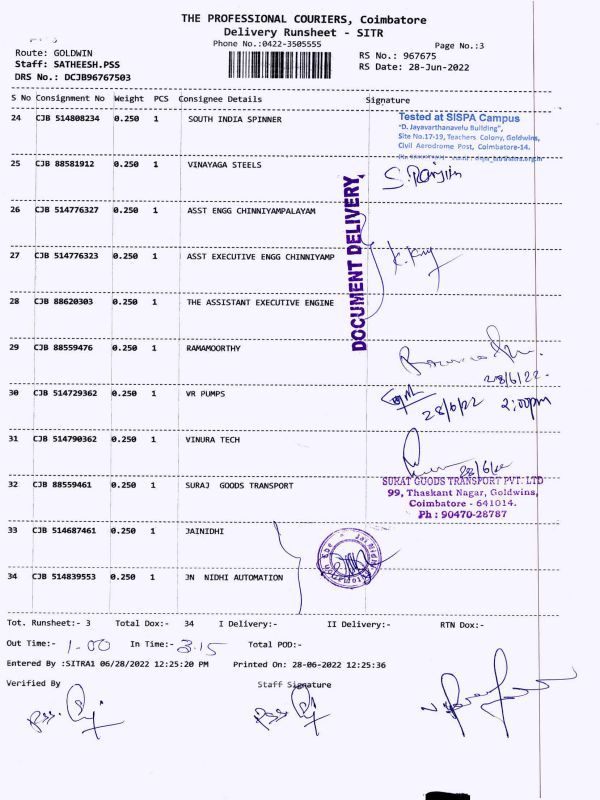 THE PROFESSIONAL COURIERS, Coimbatore
Delivery Runsheet - SITR
Phone No.:0422-3505555
Page No.:3
Route: GOLDWIN
Staff: SATHEESH.PSS
DRS No.: DCJB96767503
RS No.: 967675
RS Date: 28-Jun-2022
S No Consignment No Weight PCS Consignee Details Signature
24 CJB 514808234 0.250 1 SOUTH INDIA SPINNER
Tested at SISPA Campus
"D. Jayavarthanavelu Building",
Site No.17-19, Teachers Colony, Goldwins,
Civil Aerodrome Post, Coimbatore-14.
25 CJB 88581912 0.250 1 VINAYAGA STEELS
26 CJB 514776327 0.250 1 ASST ENGG CHINNIYAMPALAYAM
27 CJB 514776323 0.250 1 ASST EXECUTIVE ENGG CHINNIYAMP
28 CJB 88620303 0.250 1 THE ASSISTANT EXECUTIVE ENGINE
DOCUMENT DELIVERY
29 CJB 88559476 0.250 1 RAMAMOORTHY
28/6/22
30 CJB 514729362 0.250 1 VR PUMPS
28/6/22 2:00pm
31 CJB 514790362 0.250 1 VINURA TECH
28/6/22
32 CJB 88559461 0.250 1 SURAJ GOODS TRANSPORT
SURAT GOODS TRANSPORT PVT. LTD
99, Thaskant Nagar, Goldwins,
Coimbatore - 641014.
Ph : 90470-28787
33 CJB 514687461 0.250 1 JAINIDHI
34 CJB 514839553 0.250 1 JN NIDHI AUTOMATION
Tot. Runsheet:- 3 Total Dox:- 34 I Delivery:- II Delivery:- RTN Dox:-
Out Time:- 1-00 In Time:- 3.15 Total POD:-
Entered By :SITRA1 06/28/2022 12:25:20 PM Printed On: 28-06-2022 12:25:36
Verified By Staff Signature